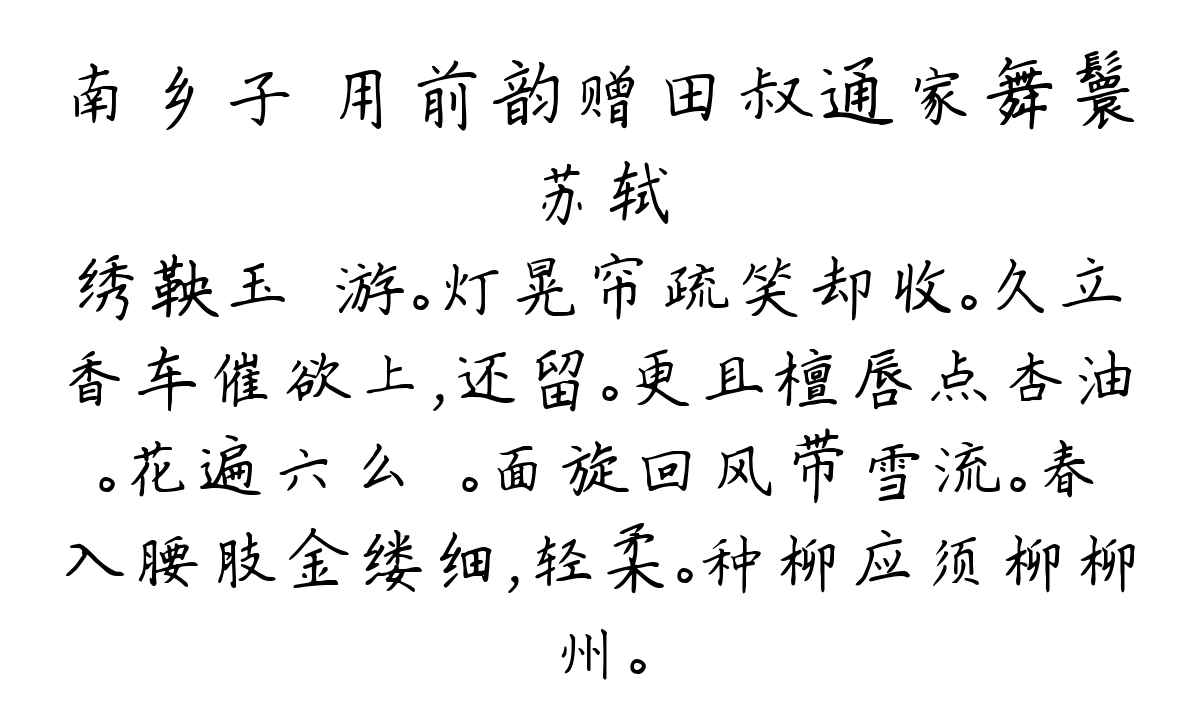 南乡子 用前韵赠田叔通家舞鬟
苏轼
绣鞅玉 游。灯晃帘疏笑却收。久立
香车催欲上,还留。更且檀唇点杏油
。花遍六么 。面旋回风带雪流。春
入腰肢金缕细,轻柔。种柳应须柳柳
州。